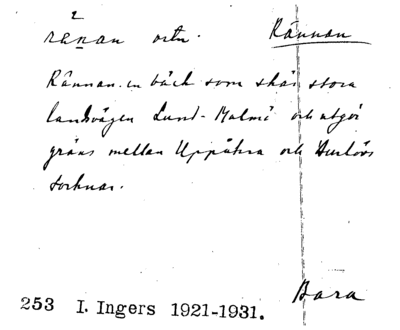 2
rännan ortn. Rännan
Rännan. en bäck som skär stora
landsvägen Lund-Malmö och utgör
gräns mellan Uppåkra och Burlövs
socknar.
Bara
253 I. Ingers 1921-1931.